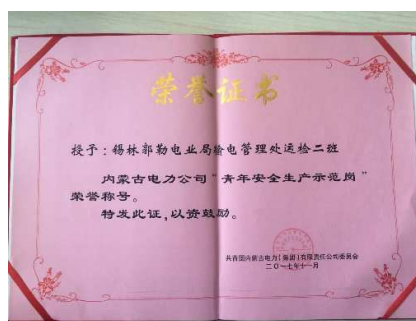 荣誉证书
授予：锡林郭勒电业局输电管理处运检二班
内蒙古电力公司“青年安全生产示范岗”
荣誉称号。
特发此证，以资鼓励。
共青团内蒙古电力（集团）有限责任公司委员会
二〇一七年十一月